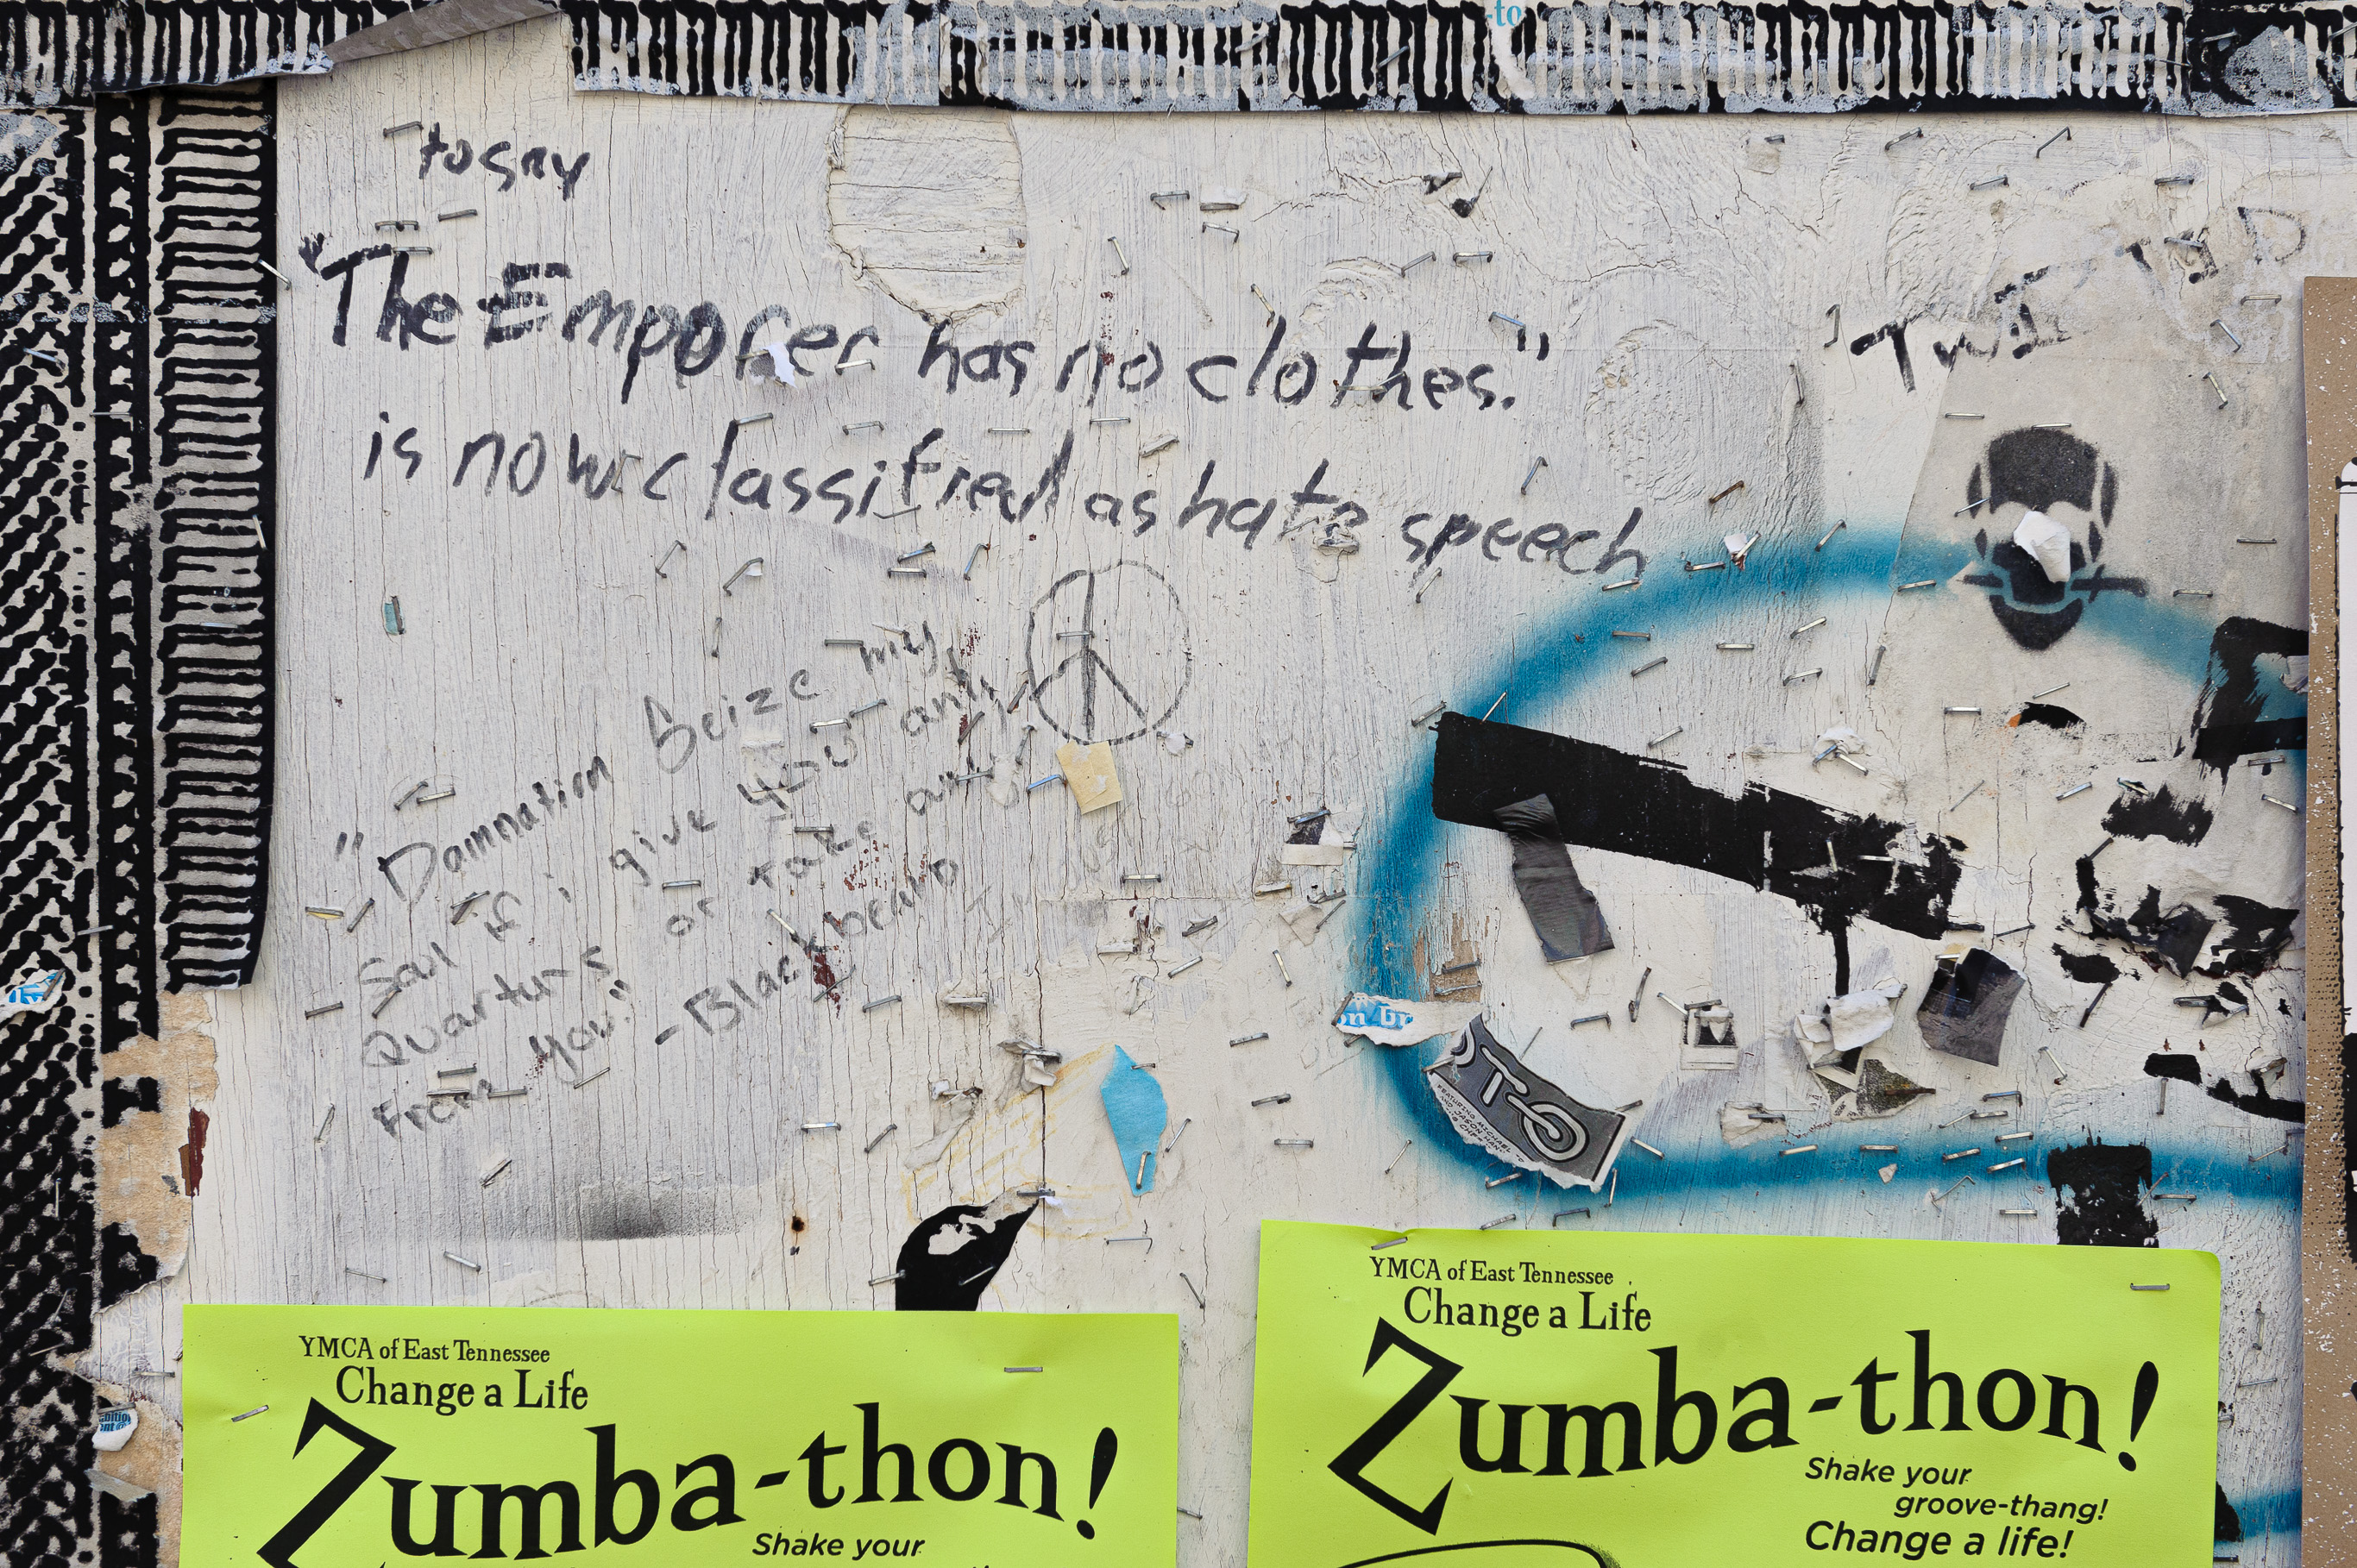 -to
to say
"The Emporer has no clothes."
is now classified as hate speech
"Damnation seize my
Soul if i give you
Quarturs or take any
From you." -Blackbeard
on br
TO
FEATURING MICHAEL
AND JASON HAN
YMCA of East Tennessee
Change a Life
Zumba-thon!
Shake your
YMCA of East Tennessee
Change a Life
Zumba-thon!
Shake your
groove-thang!
Change a life!